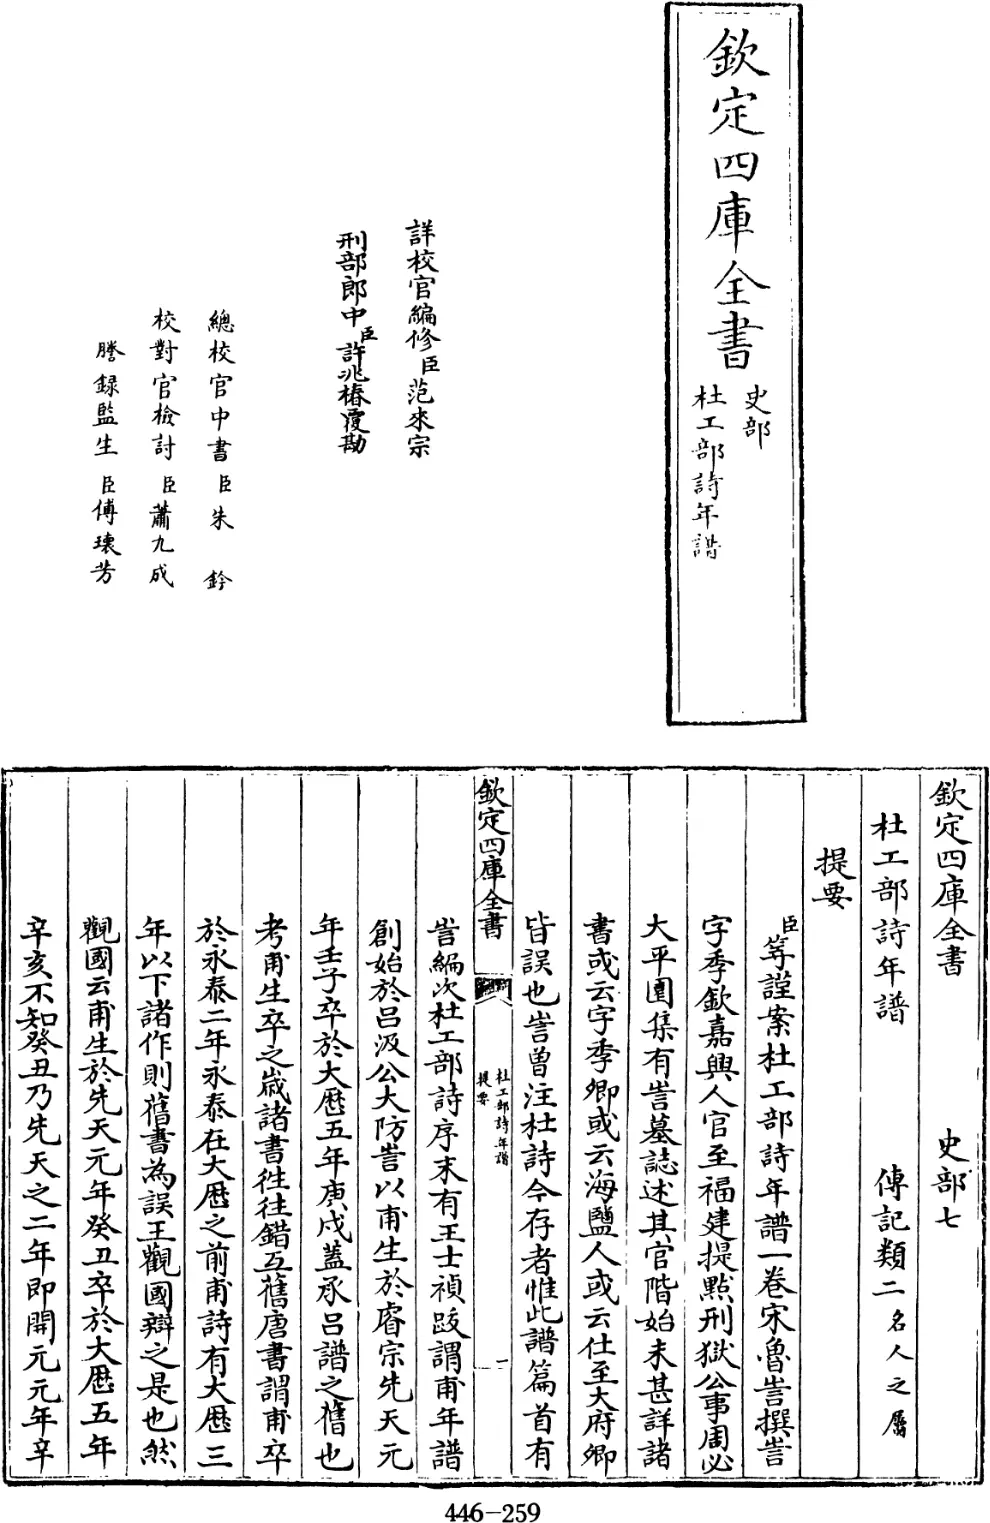 欽定四庫全書
史部
杜工部詩年譜
詳校官編修臣范來宗
刑部郎中臣許兆椿覆勘
總校官中書臣朱鈐
校對官檢討臣蕭九成
謄錄監生臣傅瓌芳
欽定四庫全書 史部七
杜工部詩年譜 傳記類二名人之屬
提要
臣等謹案杜工部詩年譜一卷宋魯訔撰訔
字季欽嘉興人官至福建提點刑獄公事周必
大平園集有訔墓誌述其官階始末甚詳諸
書或云字季卿或云海鹽人或云仕至大府卿
皆誤也訔曽注杜詩今存者惟此譜篇首有
欽定四庫全書 杜工部詩年譜 提要 一
訔編次杜工部詩序末有王士禎跋謂甫年譜
創始於呂汲公大防訔以甫生於睿宗先天元
年壬子卒於大厯五年庚戌蓋承呂譜之舊也
考甫生卒之嵗諸書徃徃錯互舊唐書謂甫卒
於永泰二年永泰在大厯之前甫詩有大厯三
年以下諸作則舊書為誤王觀國辯之是也然
觀國云甫生於先天元年癸丑卒於大厯五年
辛亥不知癸丑乃先天之二年即開元元年辛
446-259